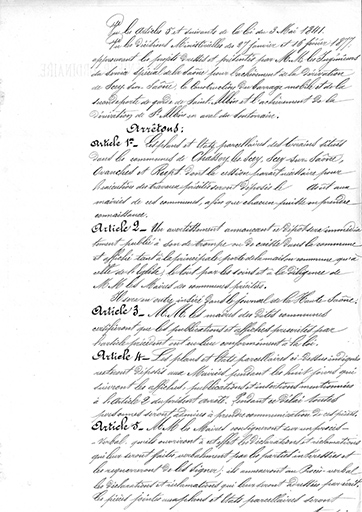 Vu les Articles 5 et suivants de la loi du 3 Mai 1841.
Vu les Décisions Ministérielles des 17 janvier et 16 février 1877
approuvant les projets dressés et présentés par M.M. les Ingénieurs
du Service Spécial de la Saône pour l'achèvement de la Dérivation
de Scey-sur-Saône, la Construction du barrage mobile et de la
seconde porte de garde de Saint-Albin et l'achèvement de la
dérivation de St Albin en aval du souterrain.
Arrêtons:
Article 1er_ Les plans et états parcellaires des terrains situés
dans les communes de Chassey-les-Scey, Scey-sur-Saône,
Ovanches et Rupt dont la cession parait nécessaire pour
l'exécution des travaux précités seront déposés le août aux
mairies de ces communes, afin que chacun puisse en prendre
connaissance.
Article 2_ Un avertissement annonçant ce dépôt sera immédia-
tement publié à son de trompe ou de caisse dans la commune
et affiché tant à la principale porte de la maison commune qu'à
celle de l'Eglise; le tout par les soins et à la diligence de
M.M. les Maires des communes précitées.
Il sera en outre inséré dans le journal de la Haute-Saône.
Article 3_ M.M. les maires des dites communes
certifieront que les publications et affiches prescrites par
l'article précédent ont eu lieu conformément à la loi.
Article 4_ Les plans et états parcellaires ci-dessus indiqués
resteront déposés aux Mairies pendant les huit jours qui
suivront les affiches, publications et insertions mentionnées
à l'article 2 du présent arrêté. Pendant ce délai toutes
personnes seront admises à prendre communication de ces pièces.
Article 5_ M.M. les Maires consigneront sur un procès-
-verbal, qu'ils ouvriront à cet effet les déclarations et réclamations
qui leur seront faites verbalement par les parties intéressées et
les requerront de les signer; ils annexeront au Procès-verbal
les déclarations et réclamations qui leur seront adressées par écrit.
les pièces jointes aux plans et états parcellaires seront